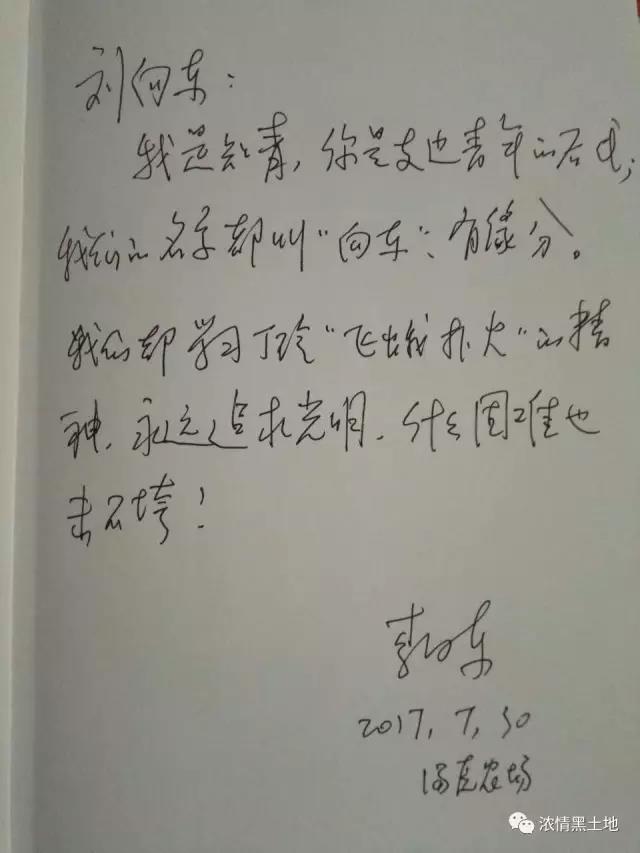 刘向东:
我是知青,你是支边青年的后代;
我们的名字都叫“向东”,有缘分。
我们都学习丁玲“飞蛾扑火”的精
神,永远追求光明,什么困难也
击不垮!
李向东
2017,7,30
农场
浓情黑土地